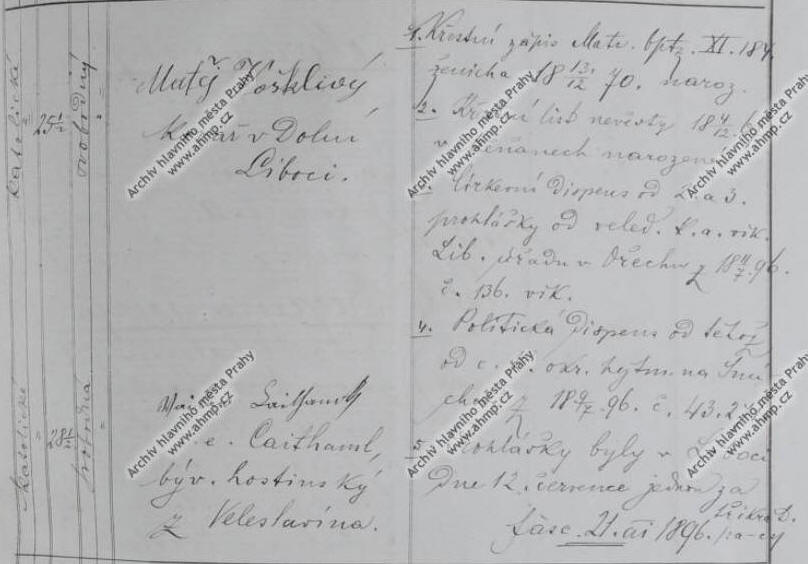 katolická
25 1/2
svobodný
Matěj Košklivý
v Dolní
Liboci.
katolické
28 1/2
svobodná
Caithaml
Caithaml,
býv. hostinský
z Veleslavína.
1. Křestní zápis Matr. bptz. XI. 184
ženicha 18 13/12 70. naroz.
2. list nevěsty 18 4/12
narozené
Církevní dispens od 2. a 3.
prohlášky od veled. k. a. vik.
Lib. úřadu v Ořechu z 18 11/7 96.
č. 136. vik.
4. Politická dispens od tétož
od c. okr. hejtm. na Smí
chově z 18 9/7 96. č. 43.2
5. Prohlášky byly v Liboci
dne 12. července jednou za
fasc. 21. ai 1896.
Archiv hlavního města Prahy
www.ahmp.cz
Archiv hlavního města Prahy
www.ahmp.cz
Archiv hlavního města Prahy
www.ahmp.cz
Archiv hlavního města Prahy
www.ahmp.cz
Archiv hlavního města Prahy
www.ahmp.cz
Archiv hlavního města Prahy
www.ahmp.cz